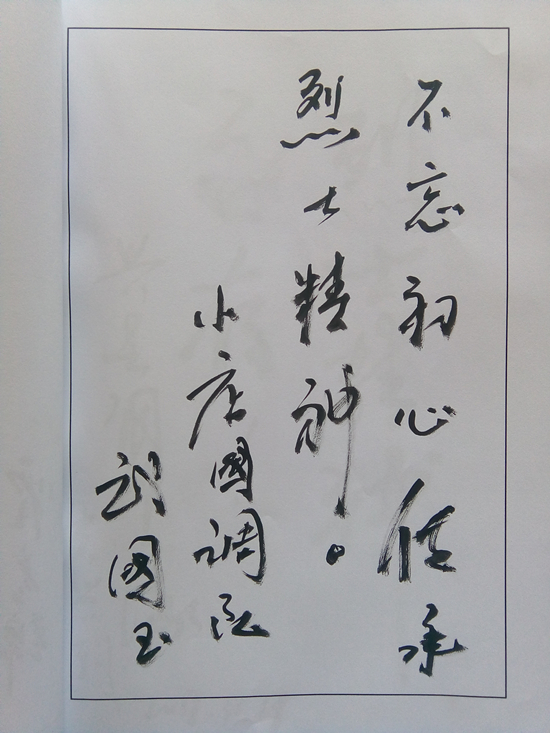 不忘初心传承
烈士精神。
小店國調队
武国玉